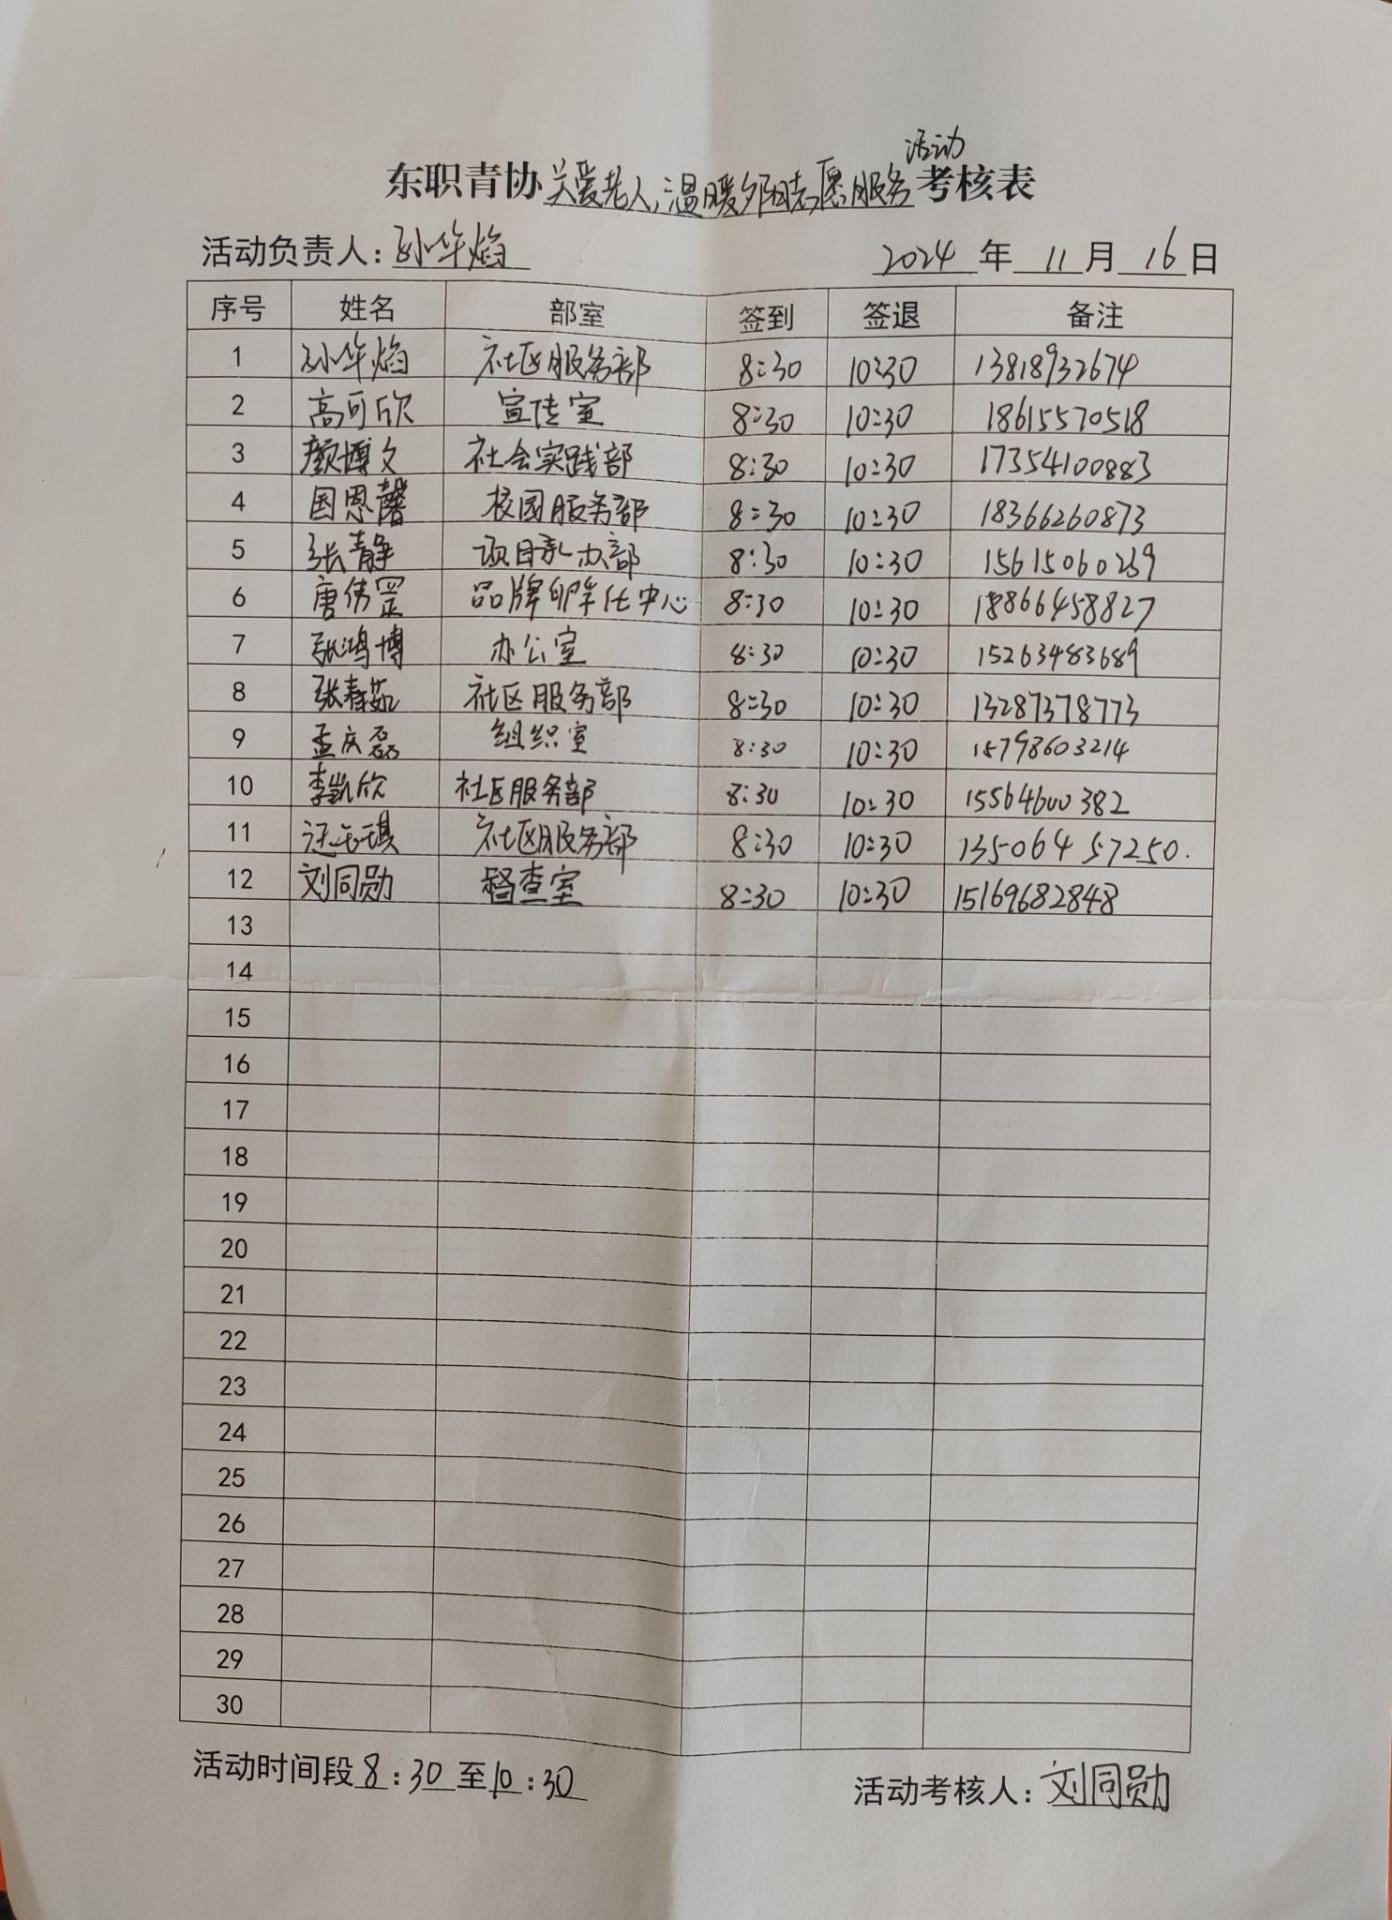 活动
东职青协关爱老人,温暖夕阳志愿服务考核表
活动负责人:孙华焰 2024年11月16日
序号 姓名 部室 签到 签退 备注
1 孙华焰 社区服务部 8:30 10:30 13818932674
2 高可欣 宣传室 8:30 10:30 18615570518
3 颜博文 社会实践部 8:30 10:30 17354100883
4 国恩馨 校园服务部 8:30 10:30 18366260873
5 张静 项目承办部 8:30 10:30 15615060239
6 唐伟罡 品牌孵化中心 8:30 10:30 18866458827
7 张鸿博 办公室 8:30 10:30 15263483689
8 张春茹 社区服务部 8:30 10:30 13287378773
9 孟庆磊 组织室 8:30 10:30 15798603214
10 李凯欣 社区服务部 8:30 10:30 15564600382
11 汪玉琪 社区服务部 8:30 10:30 13506457250.
12 刘同勋 督查室 8:30 10:30 15169682848
13
14
15
16
17
18
19
20
21
22
23
24
25
26
27
28
29
30
活动时间段8:30至10:30 活动考核人:刘同勋